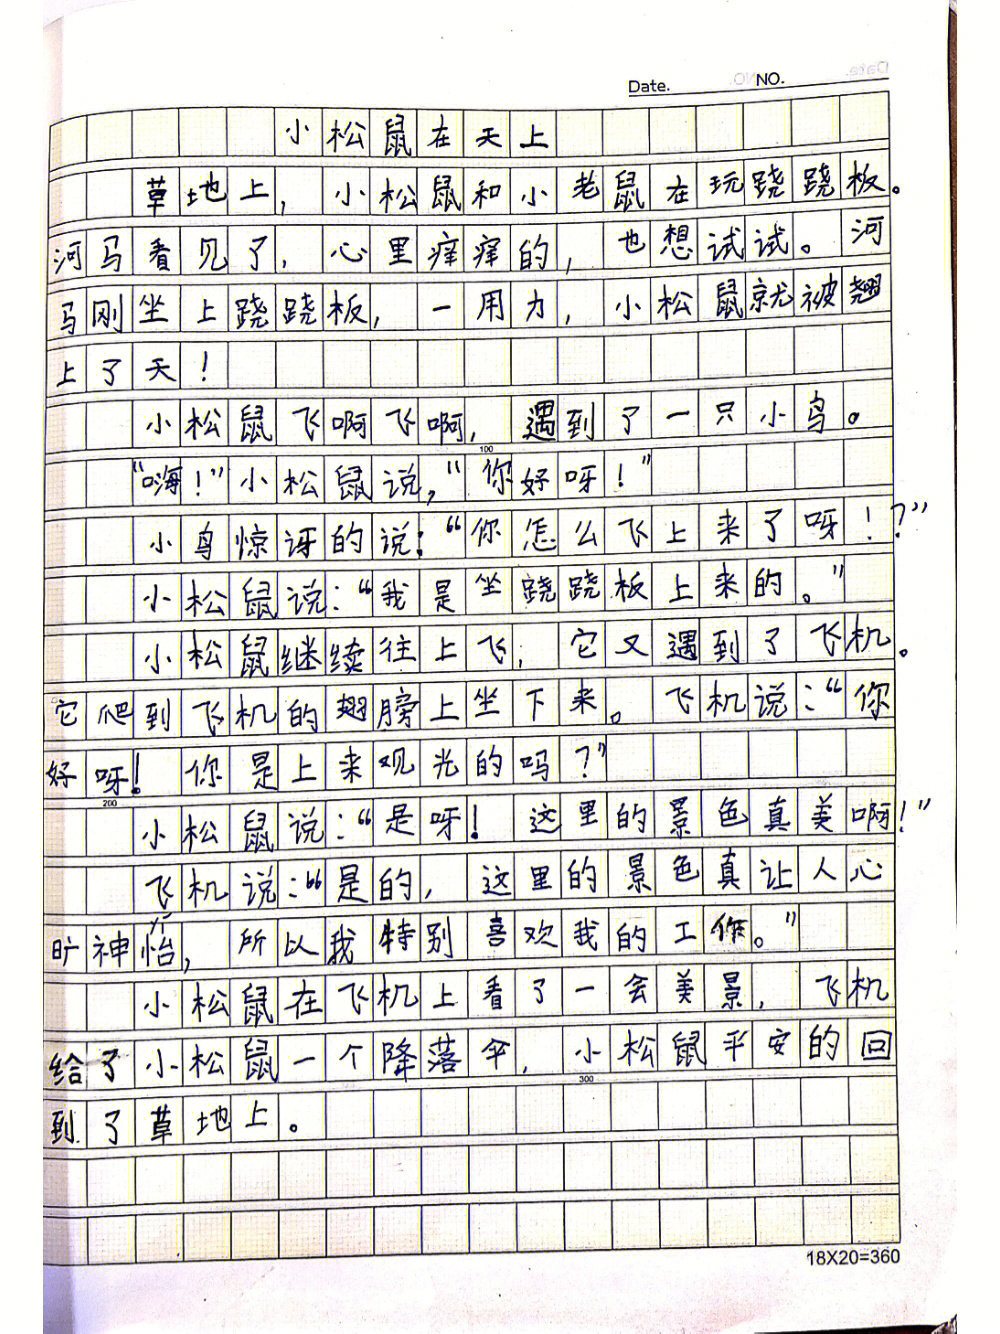 Date. NO.
小松鼠在天上
草地上，小松鼠和小老鼠在玩跷跷板。
河马看见了，心里痒痒的，也想试试。河
马刚坐上跷跷板，一用力，小松鼠就被翘
上了天！
小松鼠飞啊飞啊，遇到了一只小鸟。
100
“嗨！”小松鼠说，“你好呀！”
小鸟惊讶的说：“你怎么飞上来了呀！？”
小松鼠说：“我是坐跷跷板上来的。”
小松鼠继续往上飞，它又遇到了飞机。
它爬到飞机的翅膀上坐下来。飞机说：“你
好呀！你是上来观光的吗？”
200
小松鼠说：“是呀！这里的景色真美啊！”
飞机说：“是的，这里的景色真让人心
旷神怡，所以我特别喜欢我的工作。”
小松鼠在飞机上看了一会美景，飞机
给了小松鼠一个降落伞，小松鼠平安的回
300
到了草地上。
18X20=360